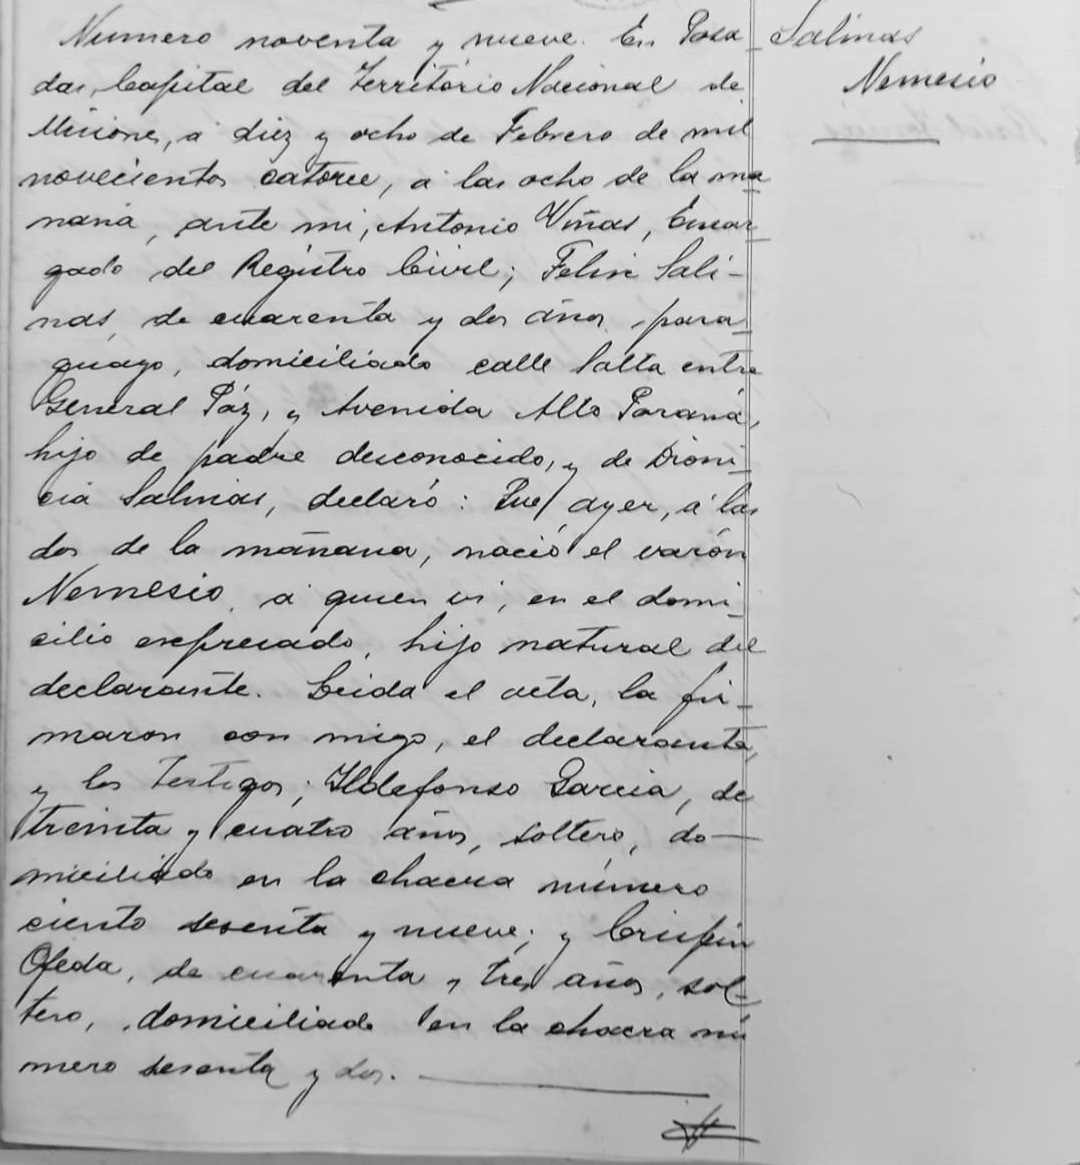 Numero noventa y nueve. En Posa_
das, Capital del Territorio Nacional de
Misiones, a diez y ocho de Febrero de mil
novecientos catorce, á las ocho de la ma
ñana, ante mi, Antonio Viñas, Encar_
gado del Registro Civil; Felix Sali-
nas, de cuarenta y dos años, para_
guayo, domiciliado calle Salta entre
General Páz, y Avenida Alto Paraná,
hijo de padre desconocido, y de Dioni_
cia Salinas, declaró: Que/ ayer, á las
dos de la mañana, nació el varón
Nemesio, a quien vi, en el domi_
cilio expresado, hijo natural del
declarante. Leida el acta, la fir_
maron con migo, el declarante,
y los Testigos; Ildefonso Garcia, de
treinta y cuatro años, soltero, do—
miciliado en la chacra número
ciento sesenta y nueve; y Crispin
Ojeda, de cuarenta y tres años, sol_
tero, domiciliado en la chacra nú
mero sesenta y dos.
Salinas
Nemesio